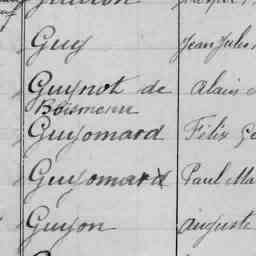 Guy Jean Jules
Guynot de Alain
Boismenu
Guyomard Félix
Guyomard Paul Ma
Guyon Auguste